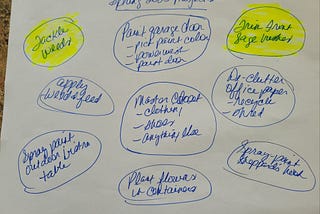 Tackle
weeds
Paint garage door
- pick paint color
- powerwash
- paint door
Trim front
sage bushes
apply
weed & feed
Master Closet
- clothing
- shoes
- anything else
De-clutter
office paper
- recycle
- shred
Spray paint
outdoor bistro
table
Plant flowers
in containers
Spray paint
shepherds hook